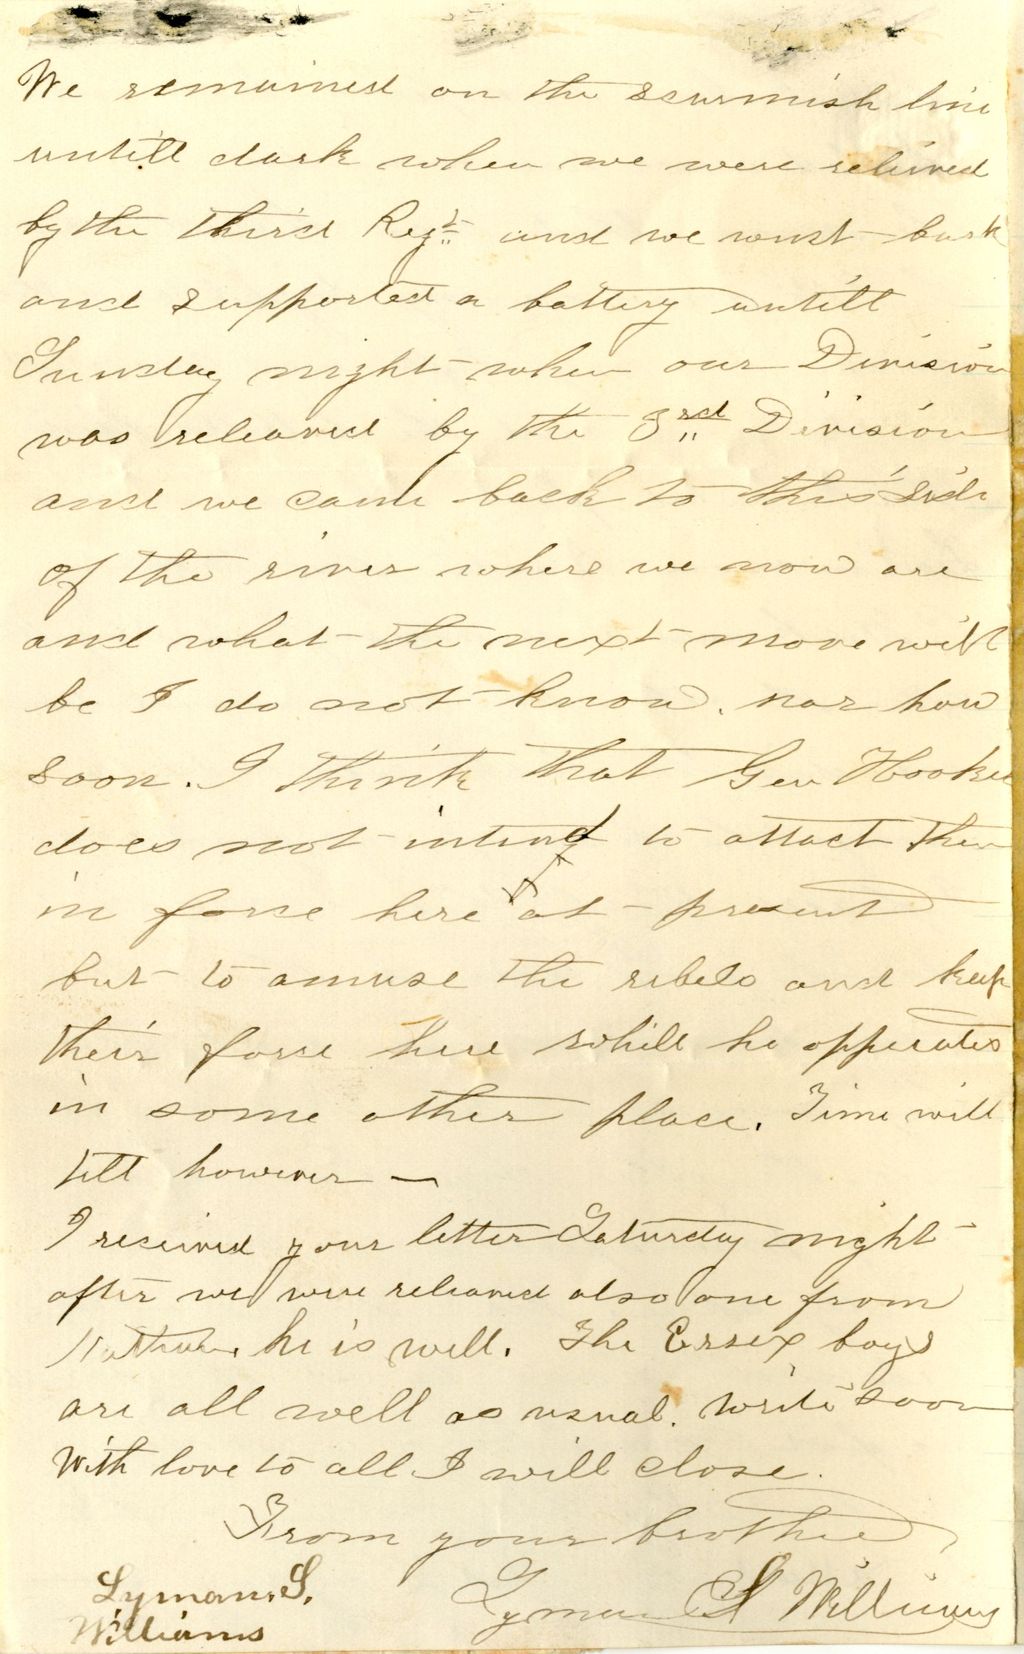 We remained on the scurmish line
untill dark when we were relieved
by the third Regt and we went back
and supported a battery untill
Sunday night when our Division
was releaved by the 3rd Division
and we came back to this side
of the river where we now are
and what the next move will
be I do not know. nor how
soon. I think that Gen Hooker
does not intend to attact them
in force here at present
but to amuse the rebels and keep
their force here whill he opperates
in some other place. Time will
tell however —
I received your letter Saturday night
after we were releaved also one from
Nathan. he is well. The Essex boys
are all well as usual. Write soon
With love to all I will close.
From your brother
Lyman S Williams
Lyman. S.
Williams